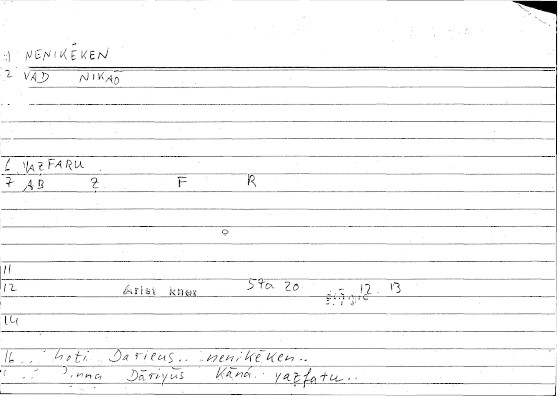 1 NENIKĒKEN
2 VAD NIKAŌ
6 YAZFARU
7 AB Z F R
11
12 Arist knor 59a 20 12 13
14
16 .. hoti Darieus.. nenikēken..
.. 'inna Dāriyūs Kāná yaẓfaru..